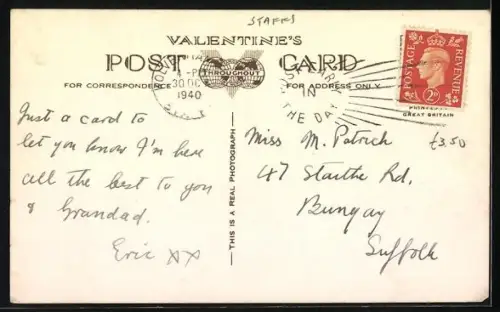 STAFFS
VALENTINE'S
POST CARD
THROUGHOUT
FOR CORRESPONDENCE
FOR ADDRESS ONLY
4-PM
30 OC
1940
POST EARLY
IN
THE DAY
POSTAGE REVENUE
2D
GREAT BRITAIN
£3.50
THIS IS A REAL PHOTOGRAPH
Just a card to
let you know I'm here
all the best to you
& Grandad.
Eric xx
Miss M. Patrick
47 Staithe Rd,
Bungay
Suffolk